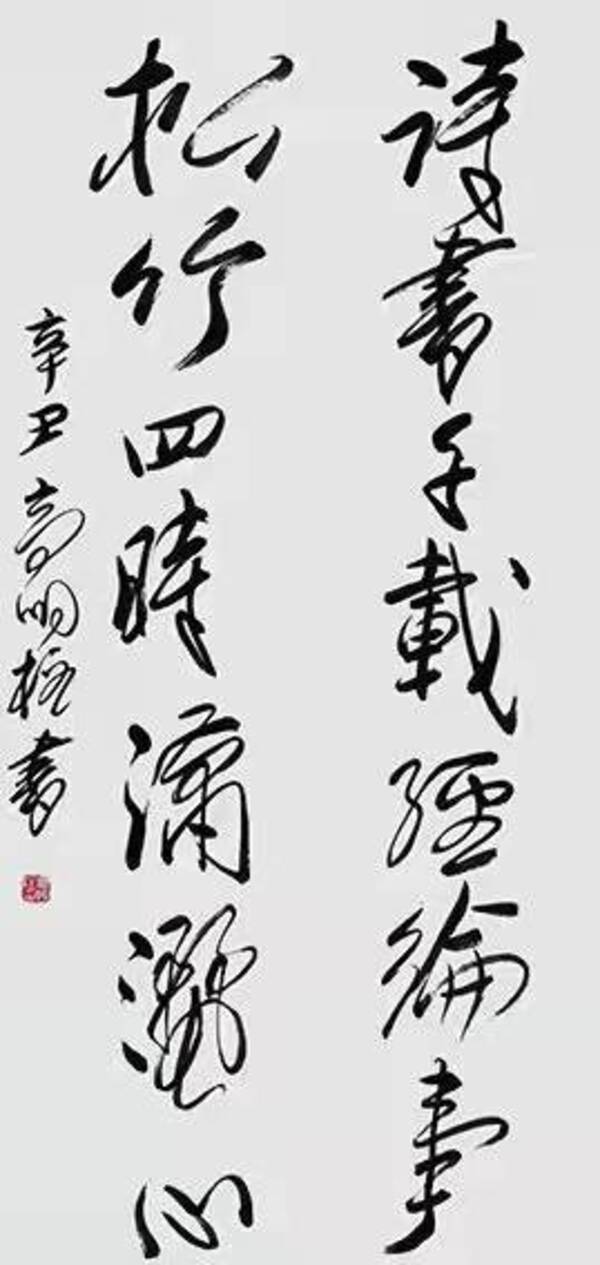 詩書千載經綸事
松竹四時瀟灑心
辛丑 高明柱書